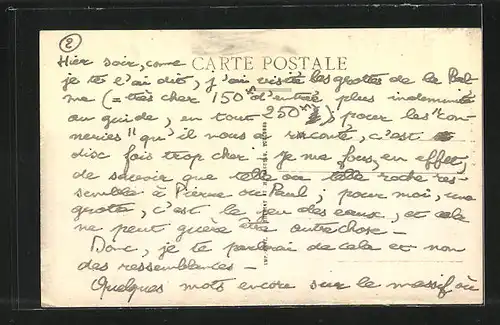 2
CARTE POSTALE
Hier soir, comme
je te l'ai dit, j'ai visité les grottes de la Bal-
me (= très cher 150 f d'entrée plus indemnité
au guide, en tout 250 f) pour les "con-
neries" qu'il nous a raconté, c'est
dix fois trop cher - je me fous, en effet,
de savoir que telle ou telle roche res-
semble à Pierre ou Paul; pour moi, une
grotte, c'est le jeu des eaux, et cela
ne peut guère être autre chose -
Donc, je te parlerai de cela et non
des ressemblances -
Quelques mots encore sur le massif où